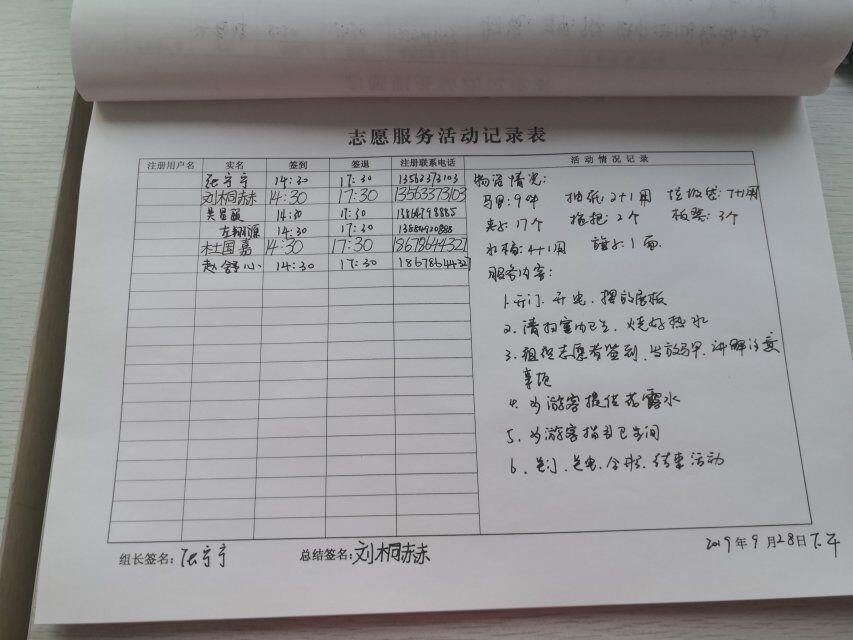 志愿服务活动记录表
注册用户名 实名 签到 签退 注册联系电话 活动情况记录
张宁宁 14:30 17:30 13563373103
刘桐赫 14:30 17:30 13563373103
14:30 17:30
左翔源 14:30 17:30
杜国嘉 14:30 17:30 18678644327
赵舒心 14:30 17:30 18678644327
物资情况:
马甲:9件 抽纸2+1用 垃圾袋:7+1用
夹子17个 拖把:2个 板凳:3个
水桶:4+1用 旗子:1面
服务内容:
1.开门、开电、摆放展板
2.清扫室内卫生、烧好热水
3.组织志愿者签到,发放马甲,讲解注意
事项
4.为游客提供花露水
5.为游客指引卫生间
6.关门、关电、合影、结束活动
组长签名:张宁宁 总结签名:刘桐赫
2019年9月28日下午